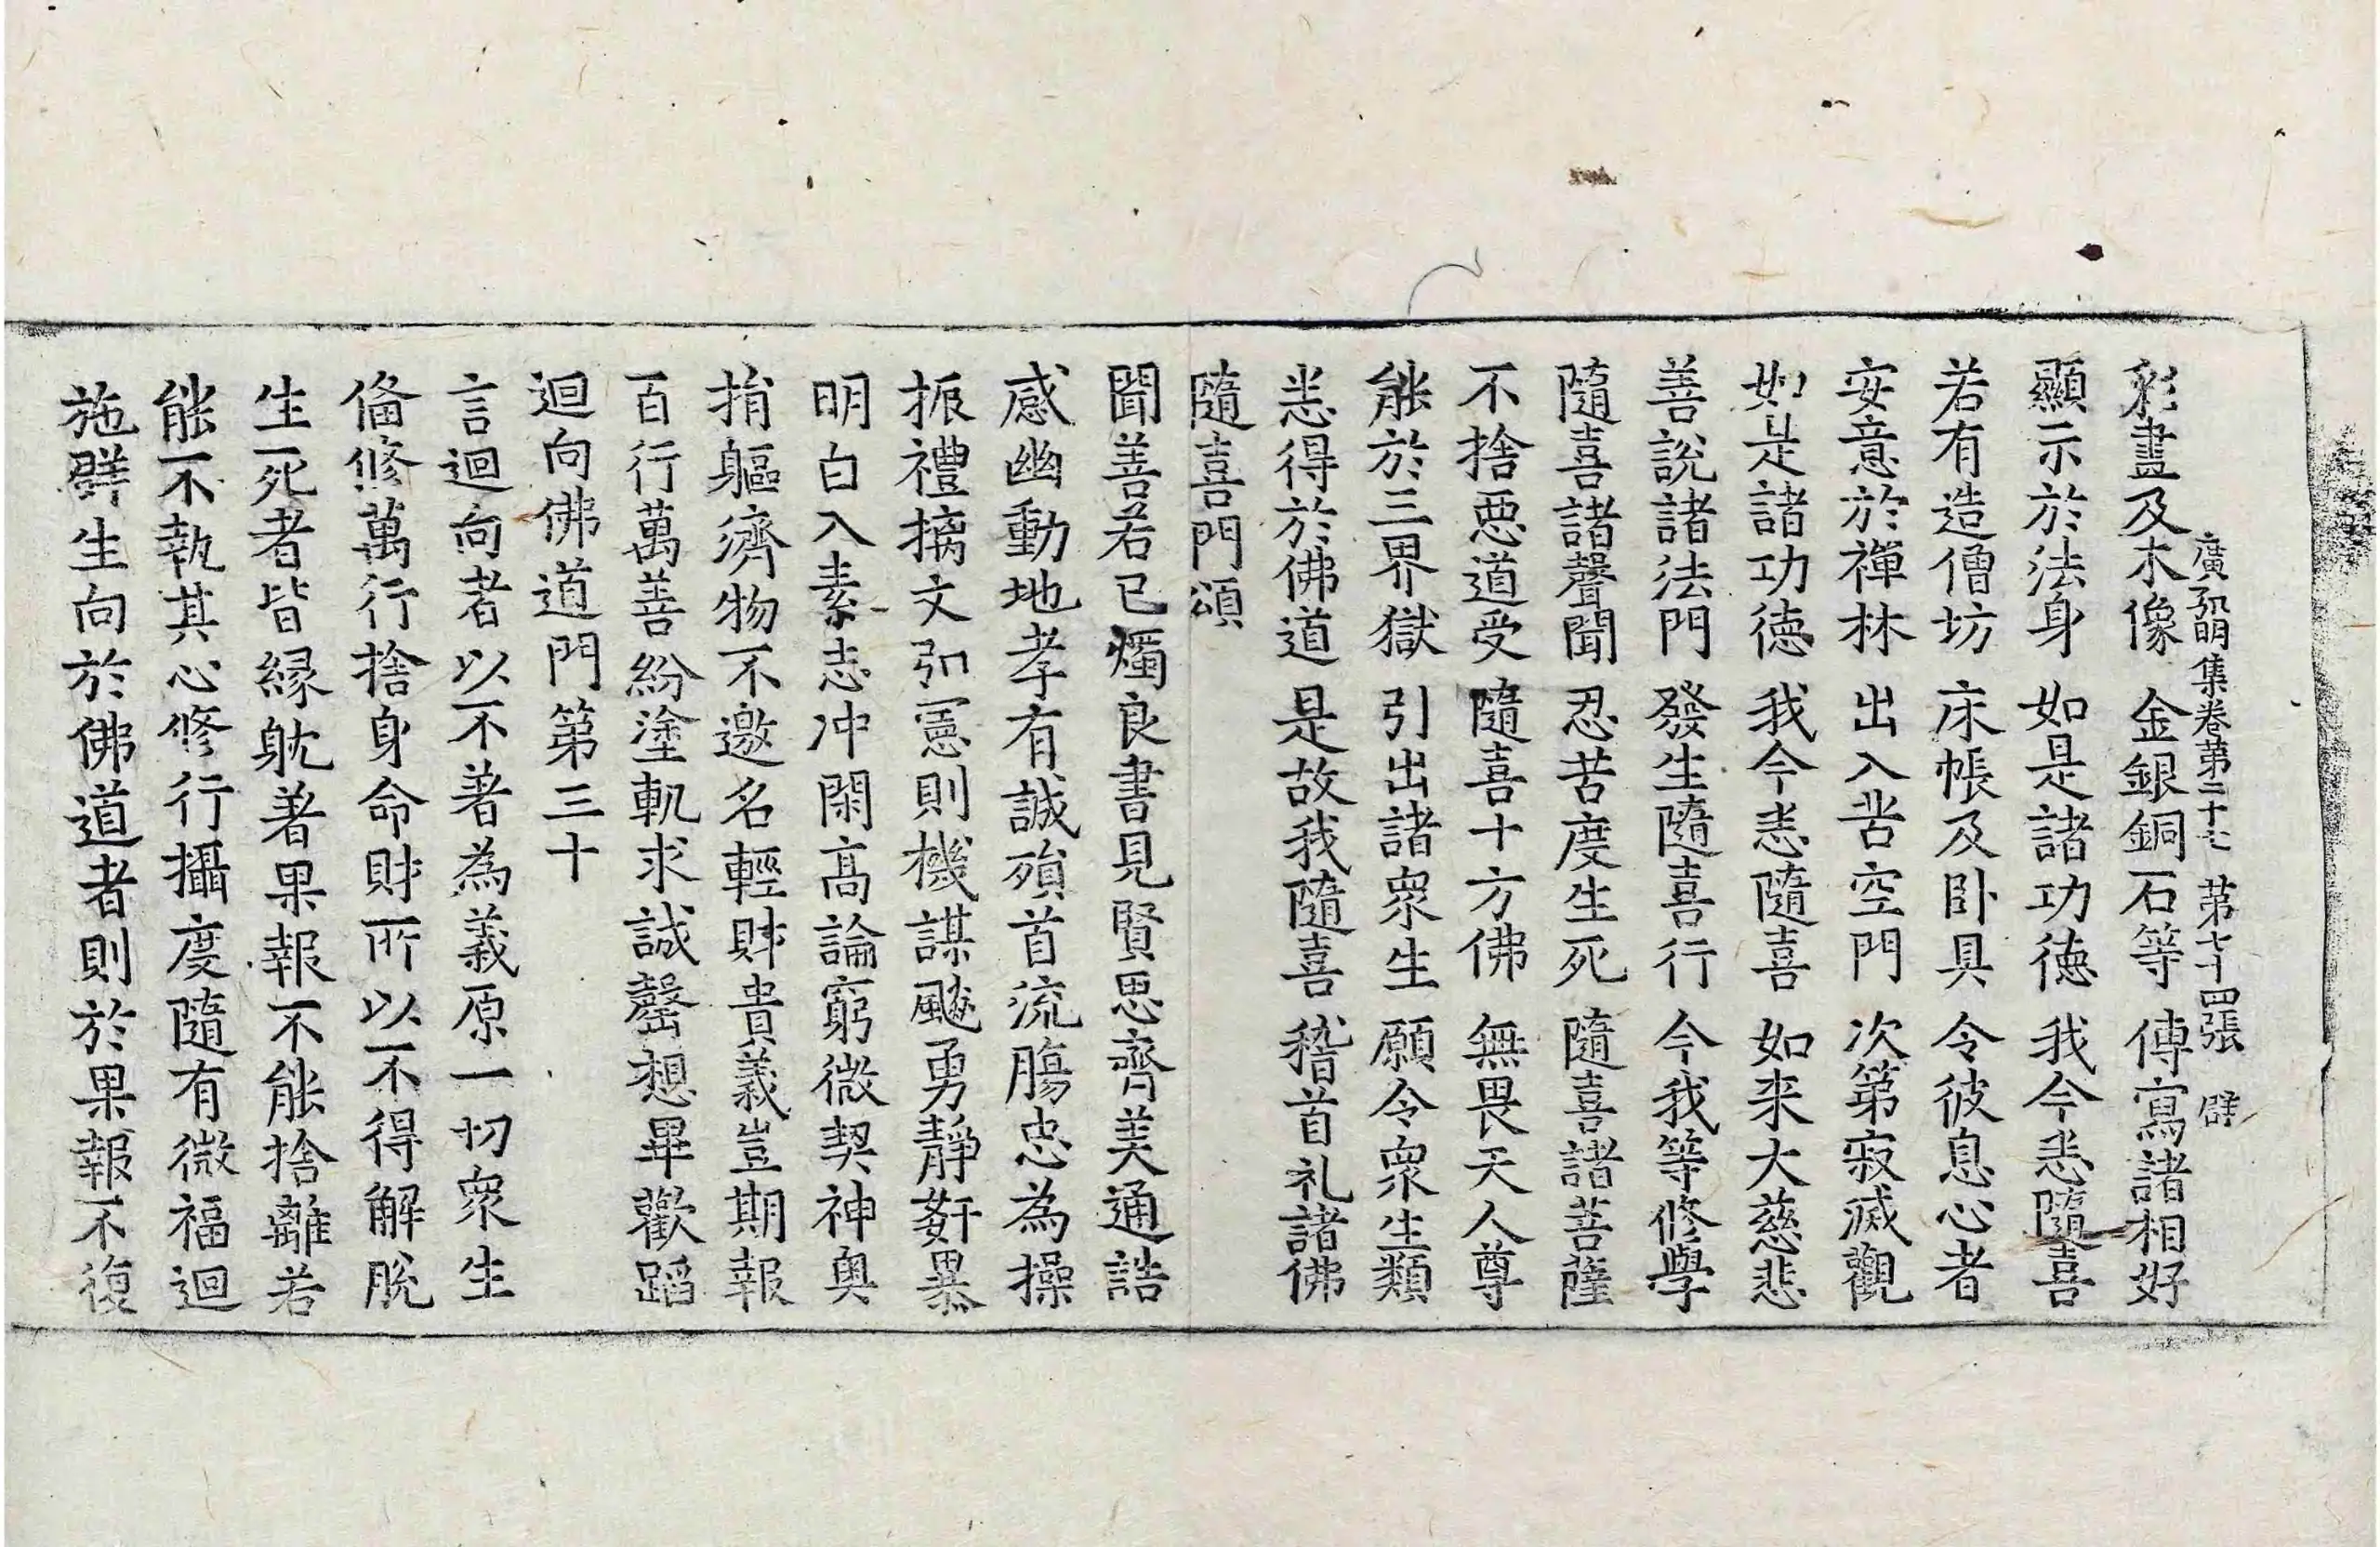 廣弘明集卷第二十七 第七十四張 辟
彩畫及木像 金銀銅石等 傳寫諸相好
顯示於法身 如是諸功德 我今悉隨喜
若有造僧坊 床帳及卧具 令彼息心者
安意於禪林 出入苦空門 次第寂滅觀
如是諸功德 我今悉隨喜 如来大慈悲
善說諸法門 發生隨喜行 令我等修學
隨喜諸聲聞 忍苦度生死 隨喜諸菩薩
不捨惡道受 隨喜十方佛 無畏天人尊
能於三界獄 引出諸衆生 願令衆生類
悉得於佛道 是故我隨喜 稽首礼諸佛
隨喜門頌
聞善若已燭良書見賢思齊美通誥
感幽動地孝有誠殞首流膓忠為操
振禮摛文弘憲則機謀颷勇静姧暴
明白入素志冲閑高論窮微契神奥
捐軀濟物不邀名輕財貴義豈期報
百行萬善紛塗軌求誠罄想畢歡蹈
迴向佛道門第三十
言迴向者以不著為義原一切衆生
俻修萬行捨身命財所以不得解脫
生死者皆縁躭著果報不能捨離若
能不執其心修行攝度隨有微福迴
施群生向於佛道者則於果報不復